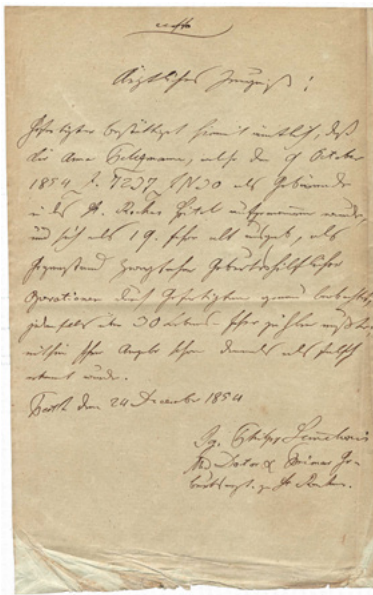 Ärztliches Zeugniß!
Gefertigter bestättiget hiemit amtlich, daß
die Anna, welche den 9 October
1854 als Gebärende
in das St. Rochus Spital aufgenommen wurde,
und sich als 19 Jahre alt ausgab, als
Gegenstand Geburtshilflicher
Operationen durch Gefertigten genau beobachtet,
jedenfalls über 30 Lebens-Jahre zählen mußte,
mithin ihre Angabe schon damals als falsch
erkannt wurde.
Pesth den 24 December 1854
Philipp Semmelweis
Med Doctor & Primar Ge-
burtsarzt zu St Rochus.